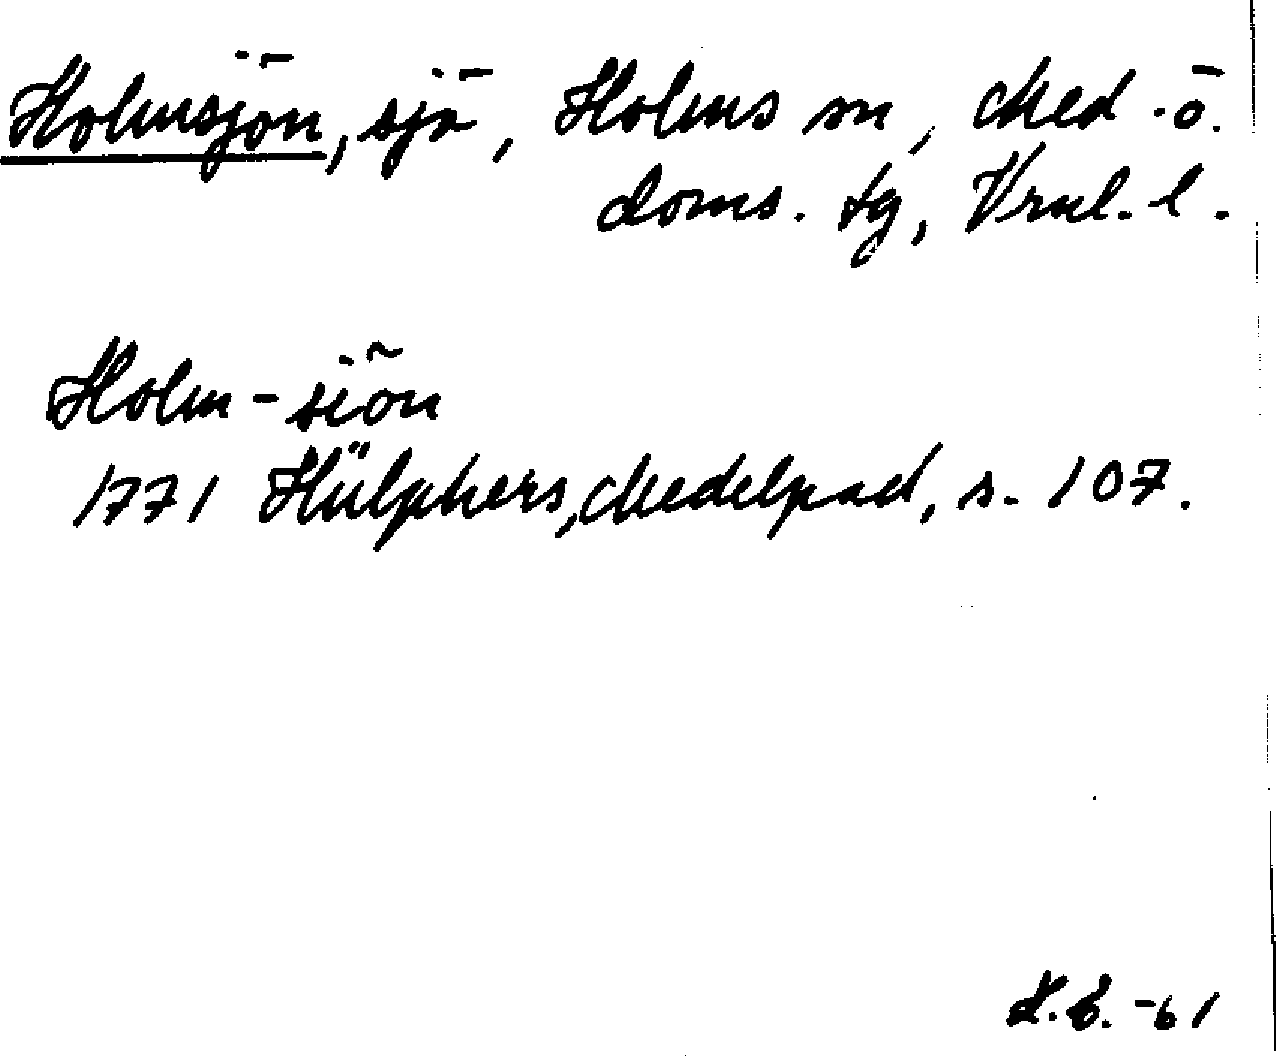 Holmsjön, sjö, Holms sn, Med. ö.
doms. tg, Vrnl. l.
Holm-siön
1771 Hülphers, Medelpad, s. 107.
-61